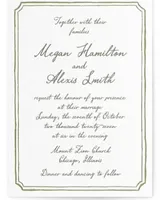 Together with their
families
Megan Hamilton
and
Alexis Smith
request the honour of your presence
at their marriage
Sunday, the seventh of October
two thousand twenty seven
at six in the evening
Mount Zion Church
Chicago, Illinois
Dinner and dancing to follow